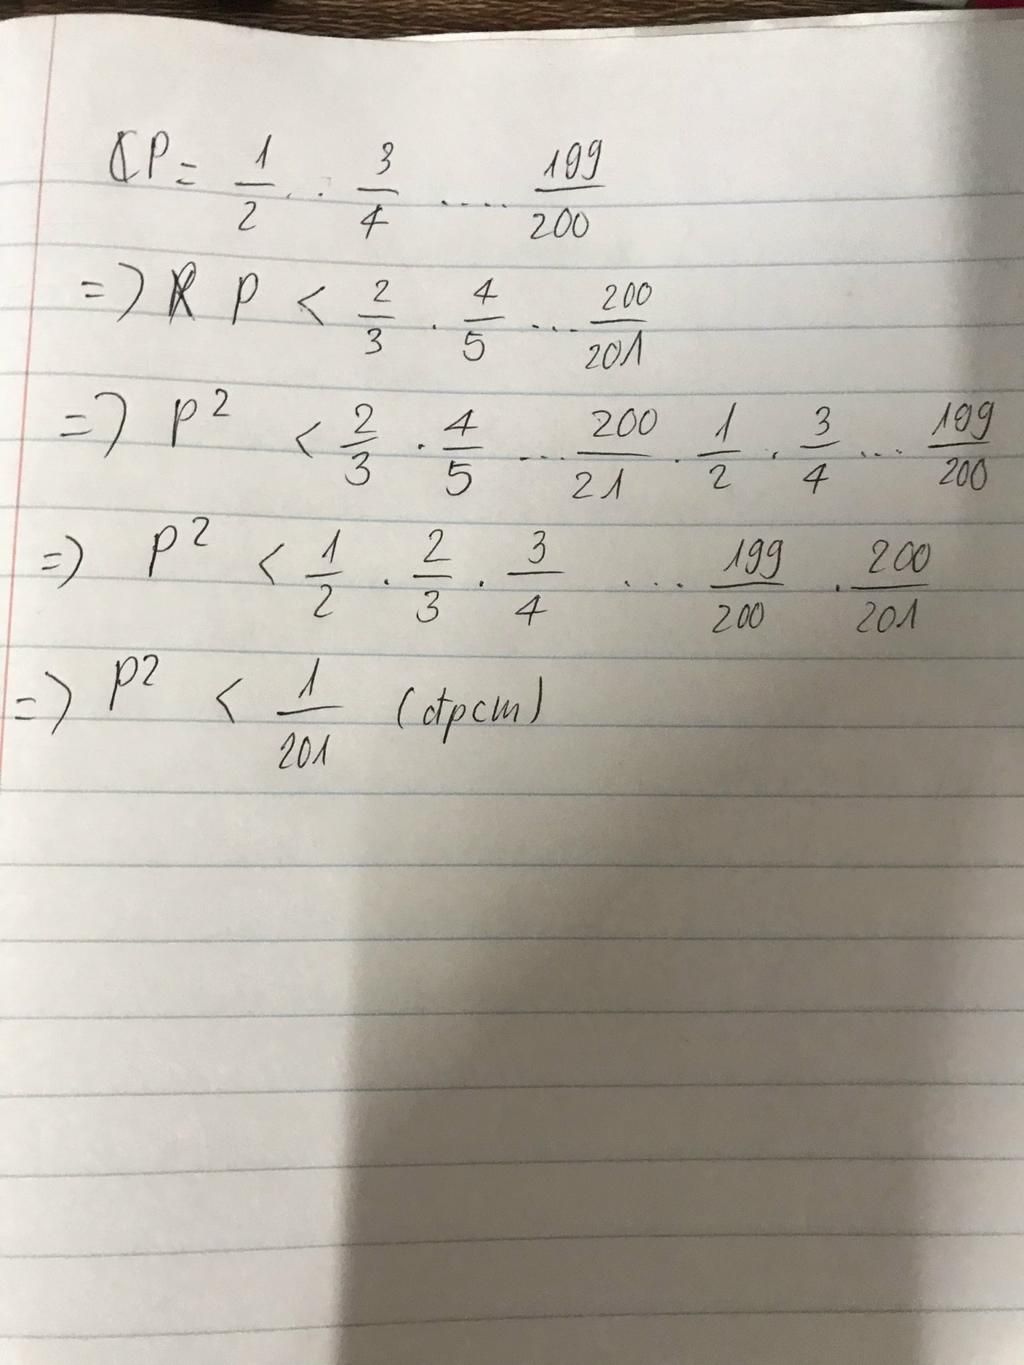 P = 1/2 . 3/4 .... 199/200
=> P < 2/3 . 4/5 ... 200/201
=> P² < 2/3 . 4/5 ... 200/21 . 1/2 . 3/4 ... 199/200
=> P² < 1/2 . 2/3 . 3/4 ... 199/200 . 200/201
=> P² < 1/201 (đpcm)